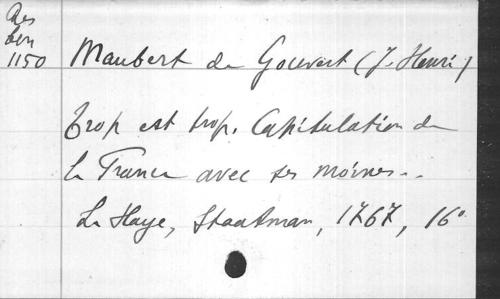 Res
1150
Maubert de Gouvest (J. Henri)
Trop est trop. Capitulation de
la France avec ses moines..
La Haye, Staatman, 1767, 16°